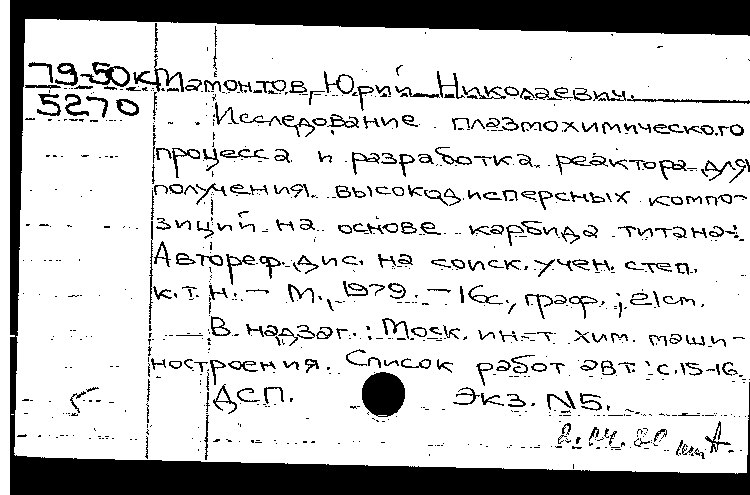 79-50к Мамонтов, Юрий Николаевич.
5270 Исследование плазмохимического
процесса и разработка реактора для
получения высокодисперсных компо-
зиций на основе карбида титана:
Автореф. дис. на соиск. учен. степ.
к.т.н. – М., 1979. – 16с., граф.; 21см.
В надзаг.: Моск. ин-т хим. маши-
ностроения. Список работ авт.: с.15-16.
5 ДСП. Экз. N5.
2.04.80